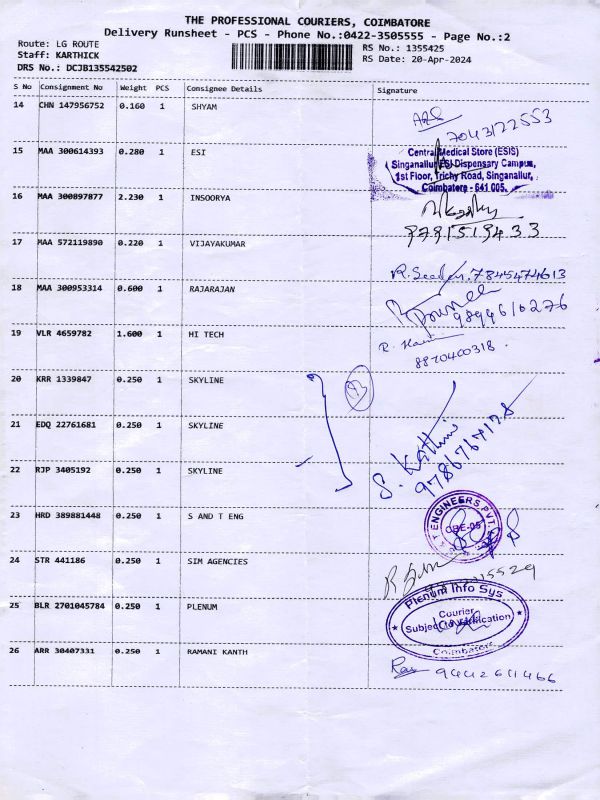 THE PROFESSIONAL COURIERS, COIMBATORE
Delivery Runsheet - PCS - Phone No.:0422-3505555 - Page No.:2
Route: LG ROUTE RS No.: 1355425
Staff: KARTHICK RS Date: 20-Apr-2024
DRS No.: DCJB135542502
S No Consignment No Weight PCS Consignee Details Signature
14 CHN 147956752 0.160 1 SHYAM
7043122553
15 MAA 300614393 0.280 1 ESI
Central Medical Store (ESIS)
Singanallur ESI Dispensary Campus,
1st Floor, Trichy Road, Singanallur,
Coimbatore - 641 005.
16 MAA 300897877 2.230 1 INSOORYA
17 MAA 572119890 0.220 1 VIJAYAKUMAR
7845474613
18 MAA 300953314 0.600 1 RAJARAJAN
9899610276
19 VLR 4659782 1.600 1 HI TECH
8870400318.
20 KRR 1339847 0.250 1 SKYLINE
21 EDQ 22761681 0.250 1 SKYLINE
22 RJP 3405192 0.250 1 SKYLINE
23 HRD 389881448 0.250 1 S AND T ENG
T ENGINEERS PVT
CBE-05
24 STR 441186 0.250 1 SIM AGENCIES
25 BLR 2701045784 0.250 1 PLENUM
Plenum Info Sys
Courier
Subject to Verification
Coimbatore
26 ARR 30407331 0.250 1 RAMANI KANTH
9442611466